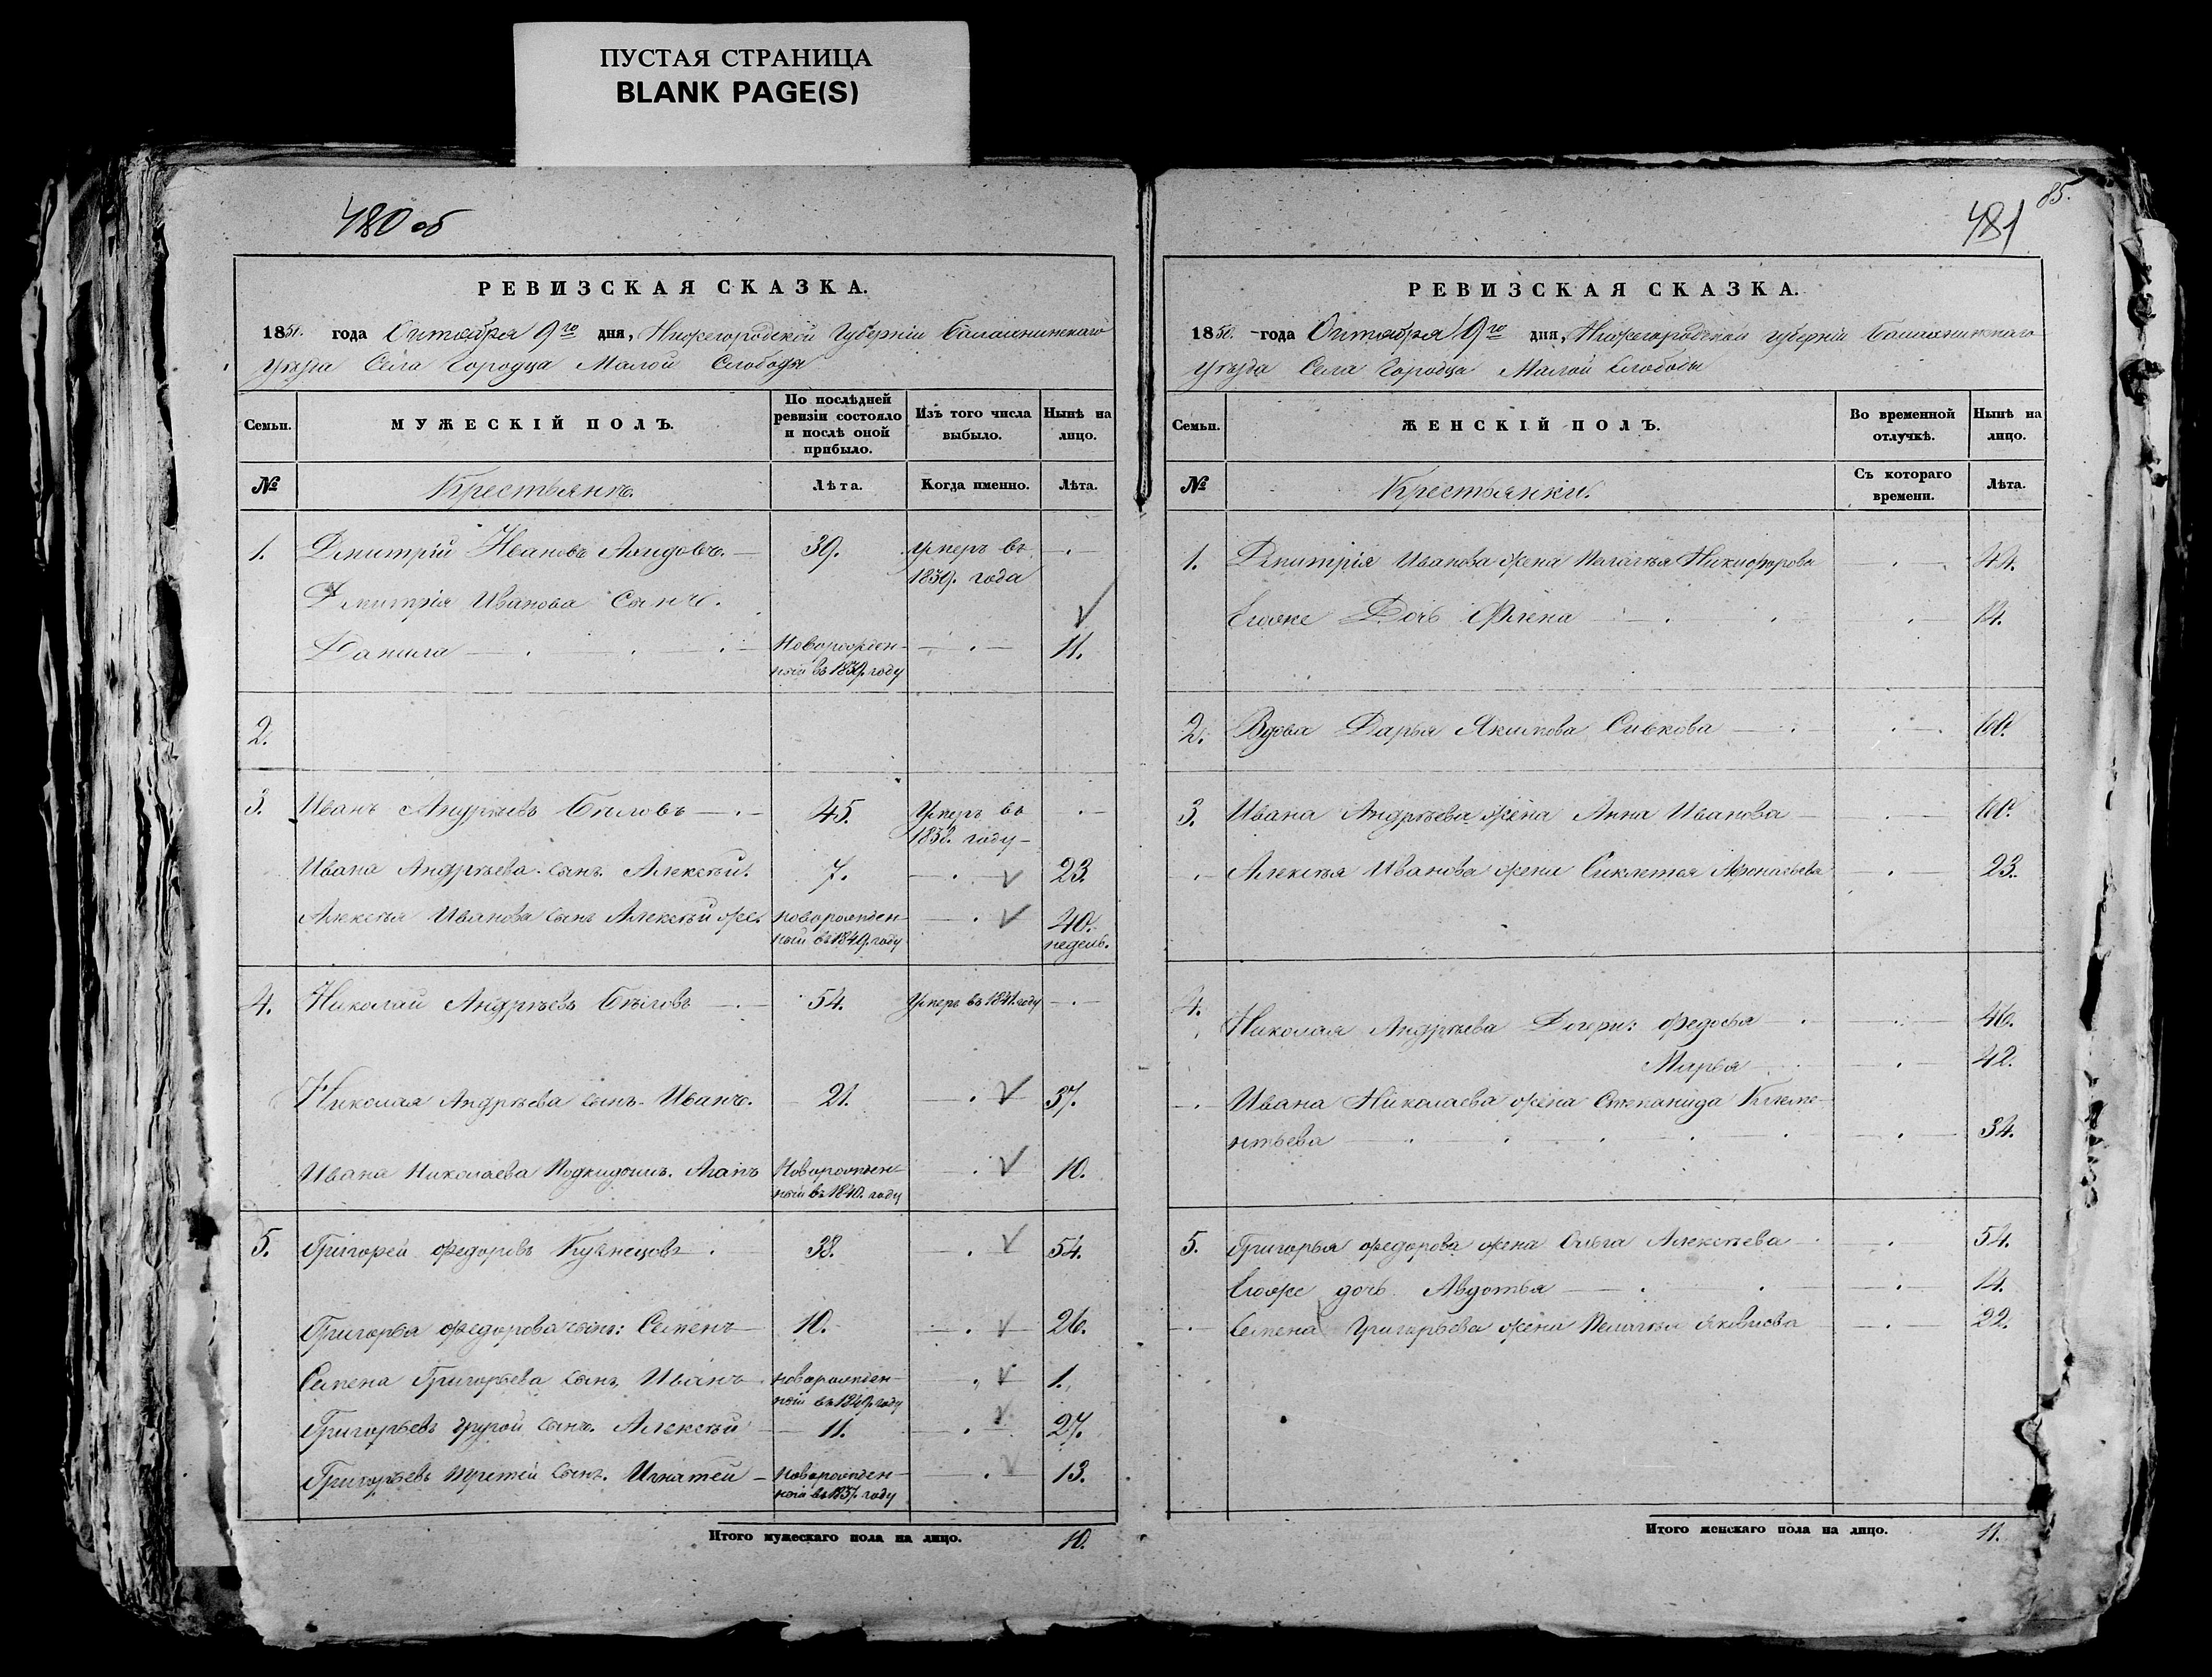 ПУСТАЯ СТРАНИЦА
BLANK PAGE(S)
480 об
РЕВИЗСКАЯ СКАЗКА.
1850. года Октября 9го дня, Нижегородской Губерніи Балахнинскаго
уѣзда Села Городца Малой Слободы
Семьи.
МУЖЕСКІЙ ПОЛЪ.
По послѣдней
ревизіи состояло
и послѣ оной
прибыло.
Изъ того числа
выбыло.
Нынѣ на
лицо.
№ Крестьянъ. Лѣта. Когда именно. Лѣта.
1. Дмитрій Ивановъ 39. Умеръ въ
1839. года
Дмитрія Иванова Сынъ.
Данила Новорожден-
ный въ 1839. году 11.
2.
3. Иванъ Андреевъ Бѣловъ 45. Умеръ въ
году
Ивана Андреева сынъ Алексѣй. 7. 23.
Алексѣя Иванова сынъ Алексѣй же. новорожден-
ный въ 1849. году 40.
недель.
4. Николай Андреевъ Бѣловъ 54. Умеръ въ 1841. году
Николая Андреева сынъ Иванъ. 21. 37.
Ивана Николаева Подкидышъ. Агапъ Новорожден-
ный въ 1840. году 10.
5. Григорей Федоровъ Кузнецовъ 38. 54.
Григорья Федорова сынъ: Семенъ 10. 26.
Семена Григорьева сынъ Иванъ новорожден-
ный въ 1849. году 1.
Григорьевъ другой сынъ. Алексѣй 11. 27.
Григорьевъ третей сынъ. Игнатей новорожден-
ный въ 1837. году 13.
Итого мужескаго пола на лицо. 10.
85.
481
РЕВИЗСКАЯ СКАЗКА.
1850. года Октября 9го дня, Нижегородской губерніи Балахнинскаго
уѣзда Села Городца Малой Слободы
Семьи.
ЖЕНСКІЙ ПОЛЪ.
Во временной
отлучкѣ.
Нынѣ на
лицо.
№ Крестьянки.
Съ котораго
времени.
Лѣта.
1. Дмитрія Иванова жена Пелагѣя Никифорова 44.
Егоже Дочь
2. Вдова Дарья Якимова Сивкова 60.
3. Ивана Андреева жена Анна Иванова 60.
Алексѣя Иванова жена Сиклетея Афонасьева 23.
4. Николая Андреева Дочери: Федосья 46.
Марья 42.
Ивана Николаева жена Степанида Клеме-
нтьева 34.
5. Григорья Федорова жена Ольга Алексѣева 54.
Егоже дочь Авдотья 14.
Семена Григорьева жена Пелагѣя Яковлева 22.
Итого женскаго пола на лицо. 11.